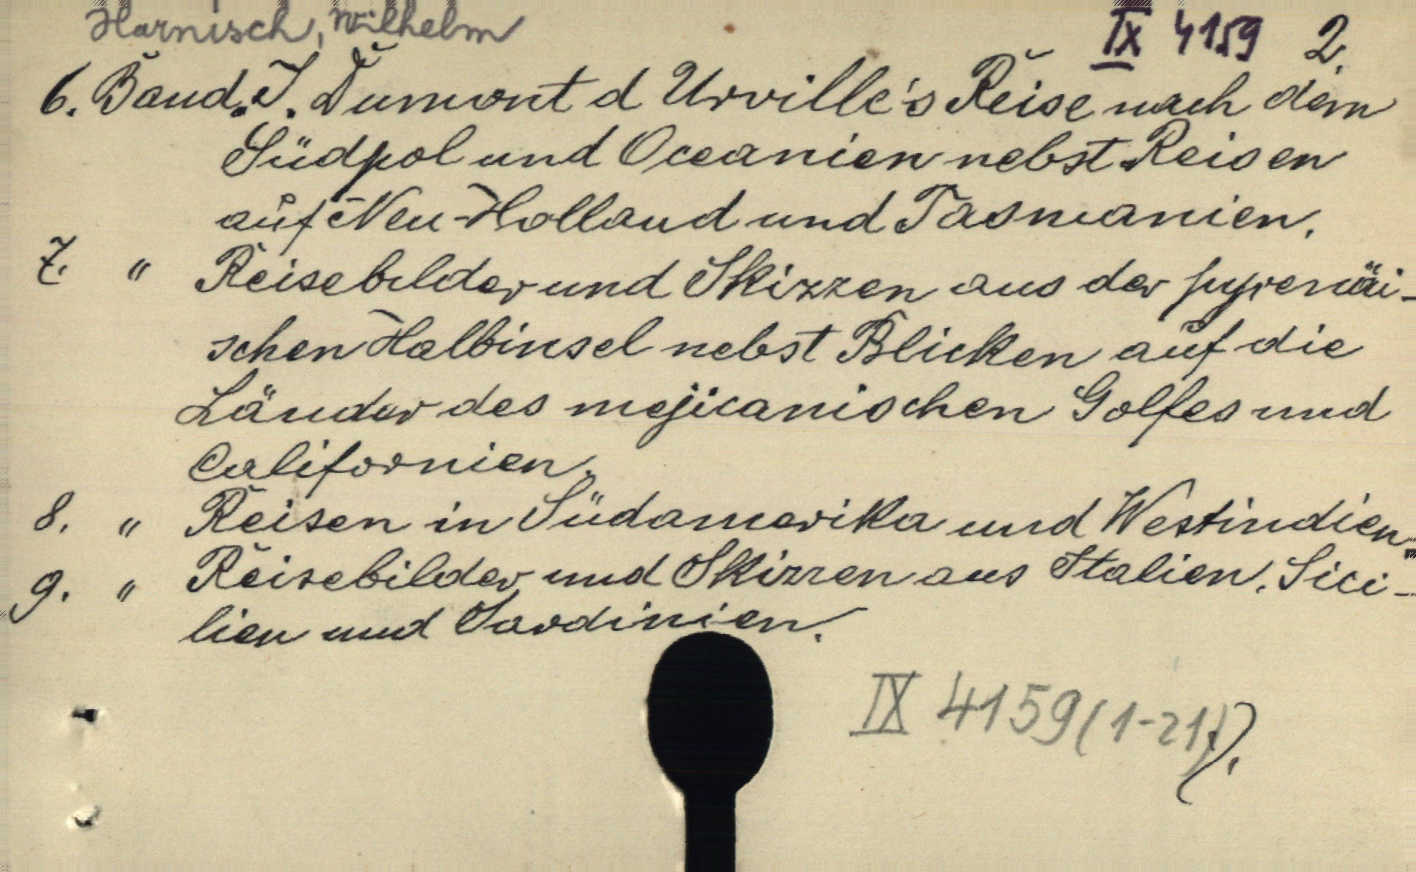 Harnisch, Wilhelm
IX 4159 2.
6. Band. J. Dumont d Urville's Reise nach dem
Südpol und Oceanien nebst Reisen
auf Neu-Holland und Tasmanien.
7. " Reisebilder und Skizzen aus der pyrenäi-
schen Halbinsel nebst Blicken auf die
Länder des mejicanischen Golfes und
Californien.
8. " Reisen in Südamerika und Westindien.
9. " Reisebilder und Skizzen aus Italien, Sici-
lien und Sardinien.
IX 4159 (1-21).